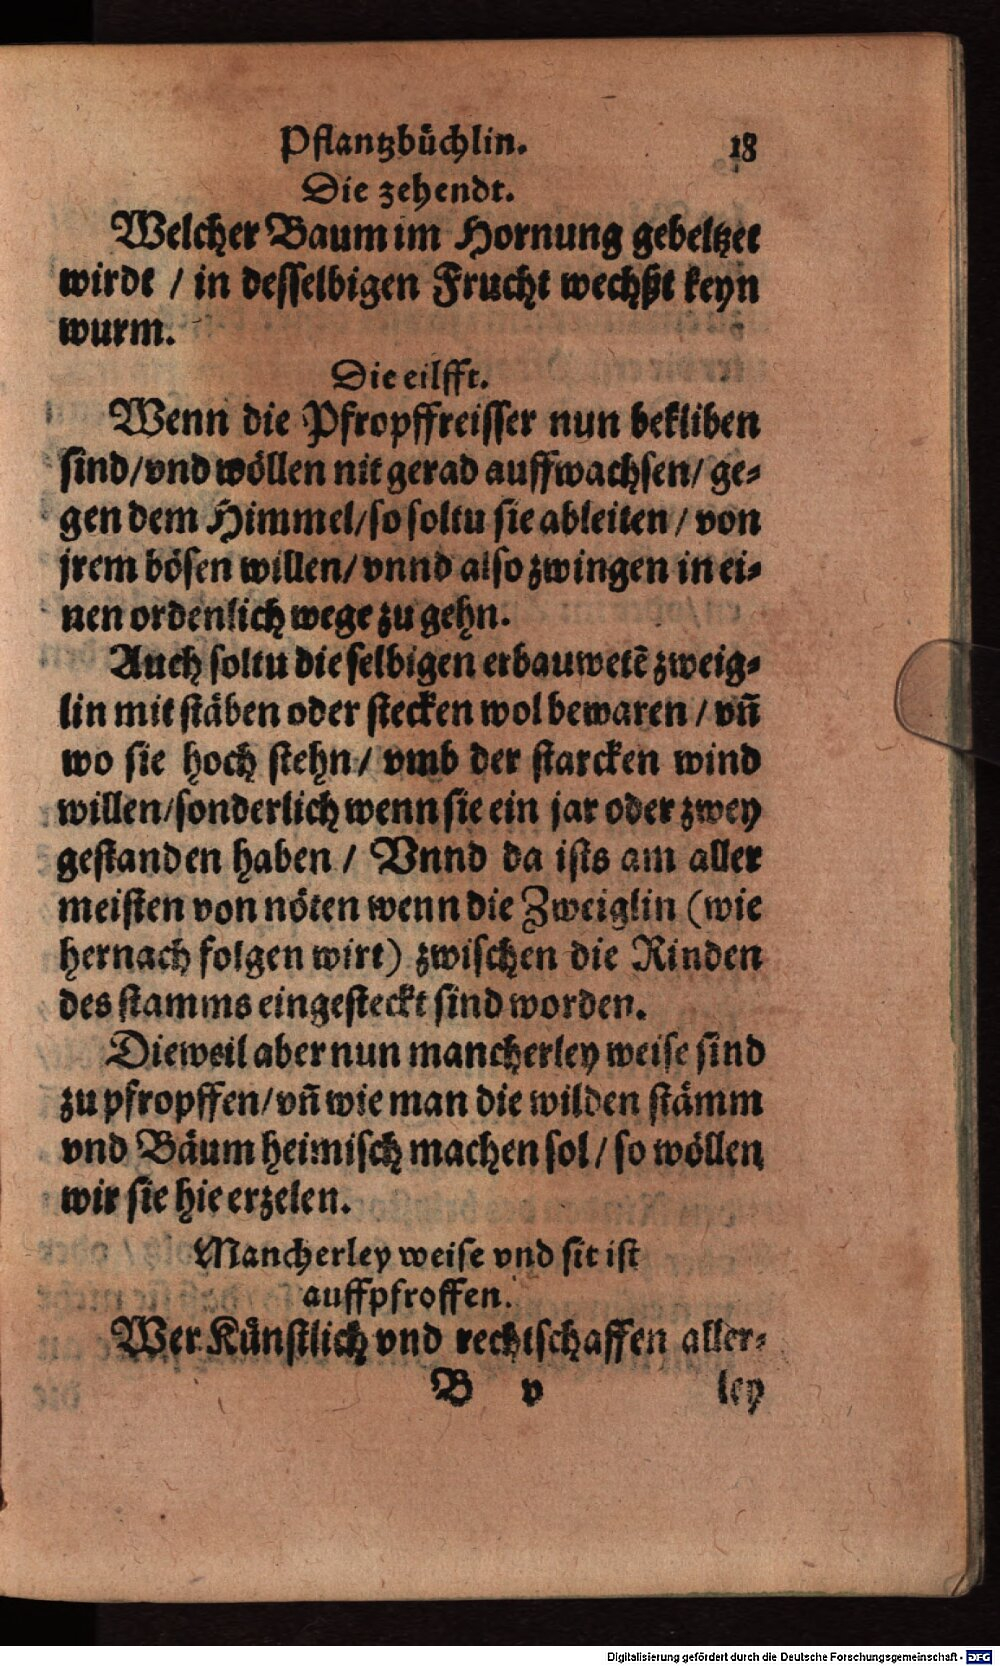 Pflantzbüchlin. 18
Die zehendt.
Welcher Baum im Hornung gebeltzet
wirdt / in desselbigen Frucht wechßt keyn
wurm.
Die eilfft.
Wenn die Pfropffreisser nun bekliben
sind/vnd wöllen nit gerad auffwachsen/ ge-
gen dem Himmel/so soltu sie ableiten / von
jrem bösen willen/ vnnd also zwingen in ei-
nen ordenlich wege zu gehn.
Auch soltu die selbigen erbauwetē zweig-
lin mit stäben oder stecken wol bewaren / vñ
wo sie hoch stehn/ vmb der starcken wind
willen/sonderlich wenn sie ein jar oder zwey
gestanden haben / Vnnd da ists am aller
meisten von nöten wenn die Zweiglin (wie
hernach folgen wirt) zwischen die Rinden
des stamms eingesteckt sind worden.
Dieweil aber nun mancherley weise sind
zu pfropffen/vñ wie man die wilden stämm
vnd Bäum heimisch machen sol / so wöllen
wir sie hie erzelen.
Mancherley weise vnd sit ist
auffpfroffen.
Wer Künstlich vnd rechtschaffen aller-
B v ley
Digitalisierung gefördert durch die Deutsche Forschungsgemeinschaft - DFG